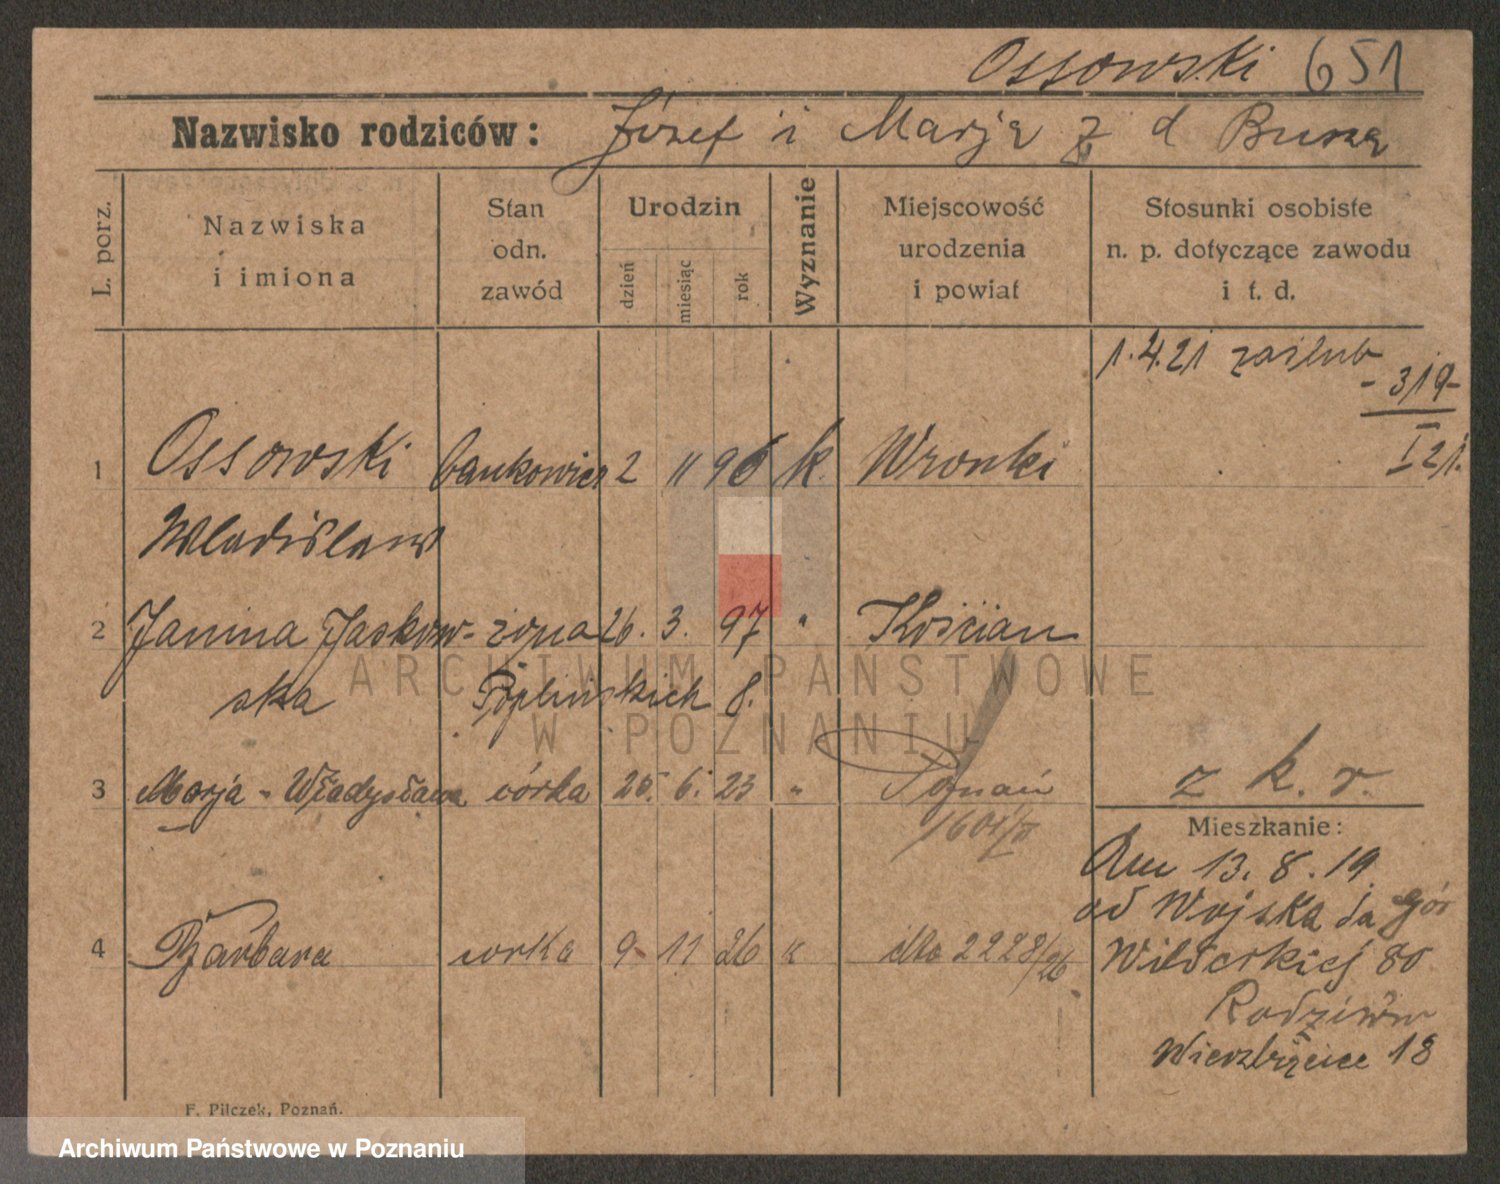 Ossowski 651
Nazwisko rodziców: Józef i Marja z d Busza
L. porz. Nazwiska i imiona Stan odn. zawód Urodzin dzień miesiąc rok Wyznanie Miejscowość urodzenia i powiat Stosunki osobiste n. p. dotyczące zawodu i t. d.
1.4.21 zaślub
- 319-
I 21.
1 Ossowski bankowiec 2 11 96 k. Wronki
Wladislaw
2 Janina Jaskow- żona 26. 3. 97 " Kościan
ska Poplińskich 8.
3 Marja - Władysława córka 25. 6. 23 " Poznań
1601/II
z k. r.
Mieszkanie:
4 Barbara corka 9 - 11 26 k dto 2228/26
Am 13. 8. 19
od Wojska da Gór
Wilderkiej 80
Rodziców
Wierzbięcice 18
F. Pilczek, Poznań.
ARCHIWUM PAŃSTWOWE
W POZNANIU
Archiwum Państwowe w Poznaniu